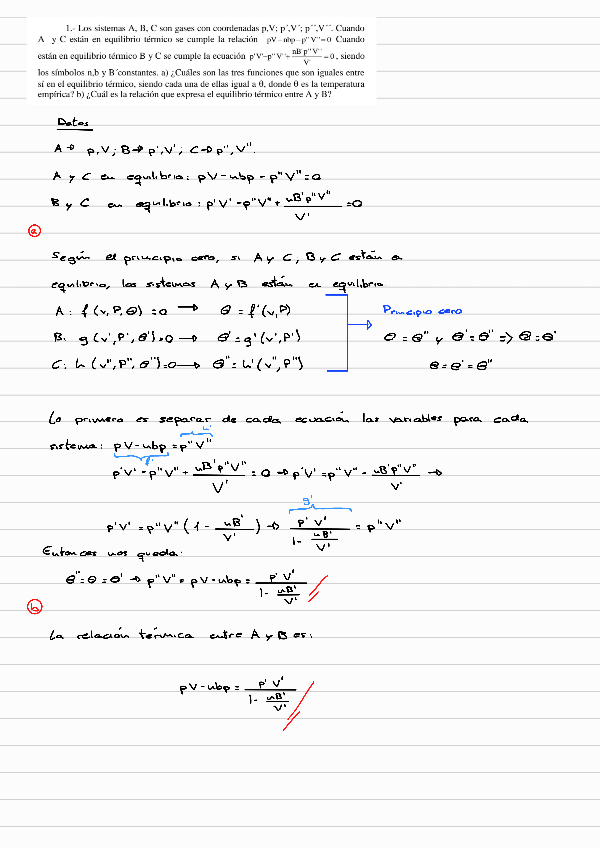 1.- Los sistemas A, B, C son gases con coordenadas p,V; p´,V´; p´´,V´´. Cuando
A y C están en equilibrio térmico se cumple la relación pV−nbp−p''V''=0 Cuando
están en equilibrio térmico B y C se cumple la ecuación p'V'−p''V''+ nB'p''V''/V' =0, siendo
los símbolos n,b y B´constantes. a) ¿Cuáles son las tres funciones que son iguales entre
sí en el equilibrio térmico, siendo cada una de ellas igual a θ, donde θ es la temperatura
empírica? b) ¿Cuál es la relación que expresa el equilibrio térmico entre A y B?
Datos
A → p,V; B → p',V'; C → p'',V''.
A y C en equilibrio: pV − nbp − p''V'' = 0
B y C en equilibrio: p'V' − p''V'' + nB'p''V''/V' = 0
a
Según el principio cero, si A y C, B y C están en
equilibrio, los sistemas A y B están en equilibrio
A: f(v,P,θ) = 0 → θ = f'(v,P)
Principio cero
B: g(v',P',θ') = 0 → θ' = g'(v',P')
θ = θ'' y θ' = θ'' => θ = θ'
C: h(v'',P'',θ'') = 0 → θ'' = h'(v'',P'')
θ = θ' = θ''
Lo primero es separar de cada ecuación las variables para cada
h'
sistema: pV − nbp = p''V''
f'
p'V' − p''V'' + nB'p''V''/V' = 0 → p'V' = p''V'' − nB'p''V''/V' →
g'
p'V' = p''V'' (1 − nB'/V') → p'V'/(1 − nB'/V') = p''V''
Entonces nos queda:
θ'' = θ = θ' → p''V'' = pV − nbp = p'V'/(1 − nB'/V')
b
La relación térmica entre A y B es:
pV − nbp = p'V'/(1 − nB'/V')